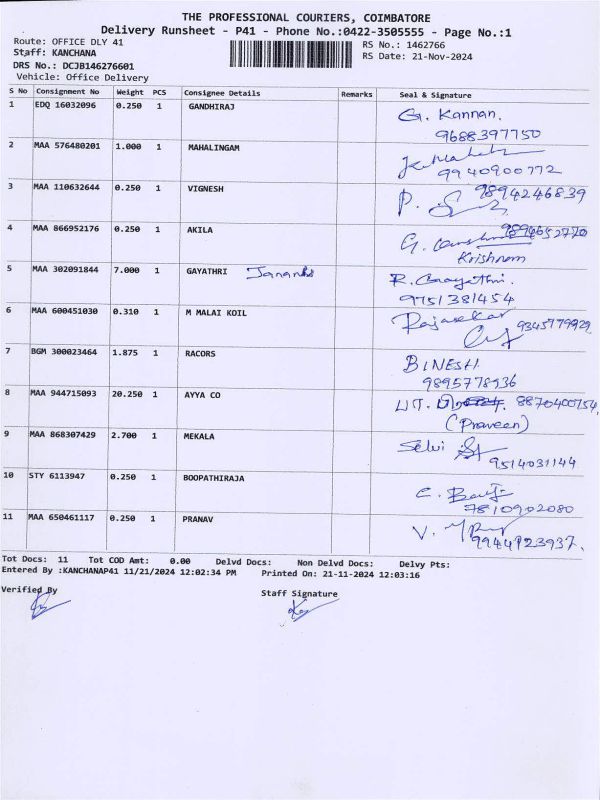 THE PROFESSIONAL COURIERS, COIMBATORE
Delivery Runsheet - P41 - Phone No.:0422-3505555 - Page No.:1
Route: OFFICE DLY 41 RS No.: 1462766
Staff: KANCHANA RS Date: 21-Nov-2024
DRS No.: DCJB146276601
Vehicle: Office Delivery
S No Consignment No Weight PCS Consignee Details Remarks Seal & Signature
1 EDQ 16032096 0.250 1 GANDHIRAJ G. Kannan.
9688397750
2 MAA 576480201 1.000 1 MAHALINGAM
9940900772
3 MAA 110632644 0.250 1 VIGNESH 9894246839
P.
4 MAA 866952176 0.250 1 AKILA 9894652770
G.
Krishnam
5 MAA 302091844 7.000 1 GAYATHRI R. Gayathri.
9751381454
6 MAA 600451030 0.310 1 M MALAI KOIL Rajasekar
9345779929
7 BGM 300023464 1.875 1 RACORS BINESH
9895778936
8 MAA 944715093 20.250 1 AYYA CO 8870400754
(Praveen)
9 MAA 868307429 2.700 1 MEKALA Selvi
9514031144
10 STY 6113947 0.250 1 BOOPATHIRAJA
7810902080
11 MAA 650461117 0.250 1 PRANAV V.
9944923937.
Tot Docs: 11 Tot COD Amt: 0.00 Delvd Docs: Non Delvd Docs: Delvy Pts:
Entered By :KANCHANAP41 11/21/2024 12:02:34 PM Printed On: 21-11-2024 12:03:16
Verified By Staff Signature